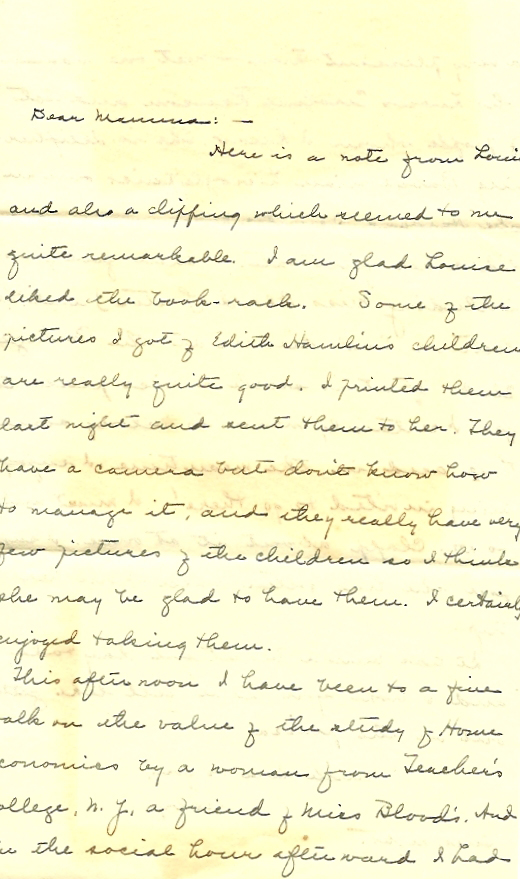 Dear Mamma: —
Here is a note from Loui
and also a clipping which seemed to me
quite remarkable. I am glad Louise
liked the book-rack. Some of the
pictures I got of Edith Hamlin's children
are really quite good. I printed them
last night and sent them to her. They
have a camera but don't know how
to manage it, and they really have very
few pictures of the children so I think
she may be glad to have them. I certainly
enjoyed taking them.
This afternoon I have been to a fine
talk on the value of the study of Home
conomics by a woman from Teacher's
ollege, N.Y., a friend of Miss Blood's. And
in the social hour afterward I had